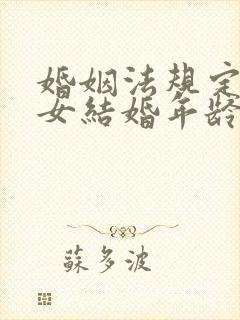 婚姻法規定
女結婚年齡
蘇多波